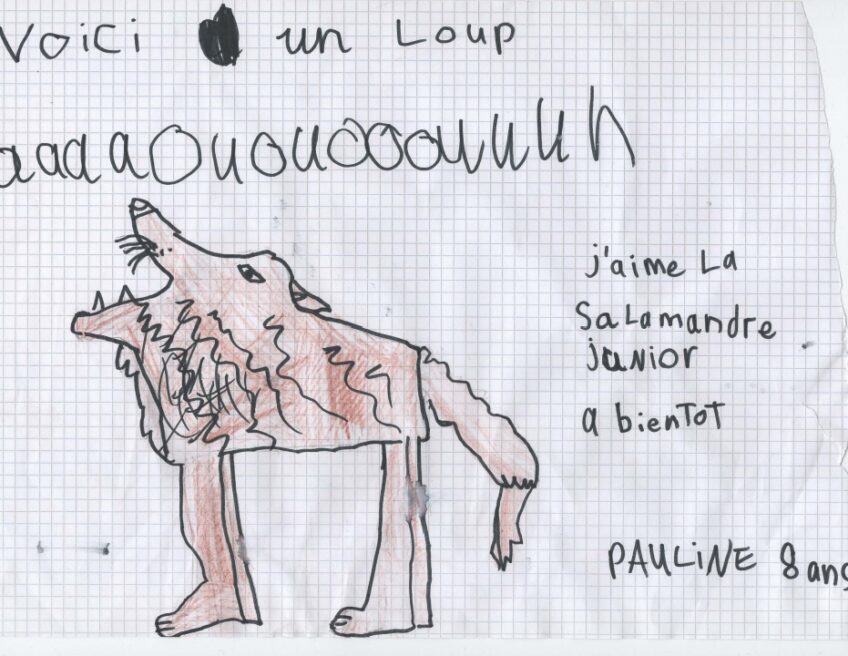 Voici un Loup
aaaaOuouooouuuh
j'aime La
SaLamandre
junior
a bienTOT
PAULiNE 8 ans